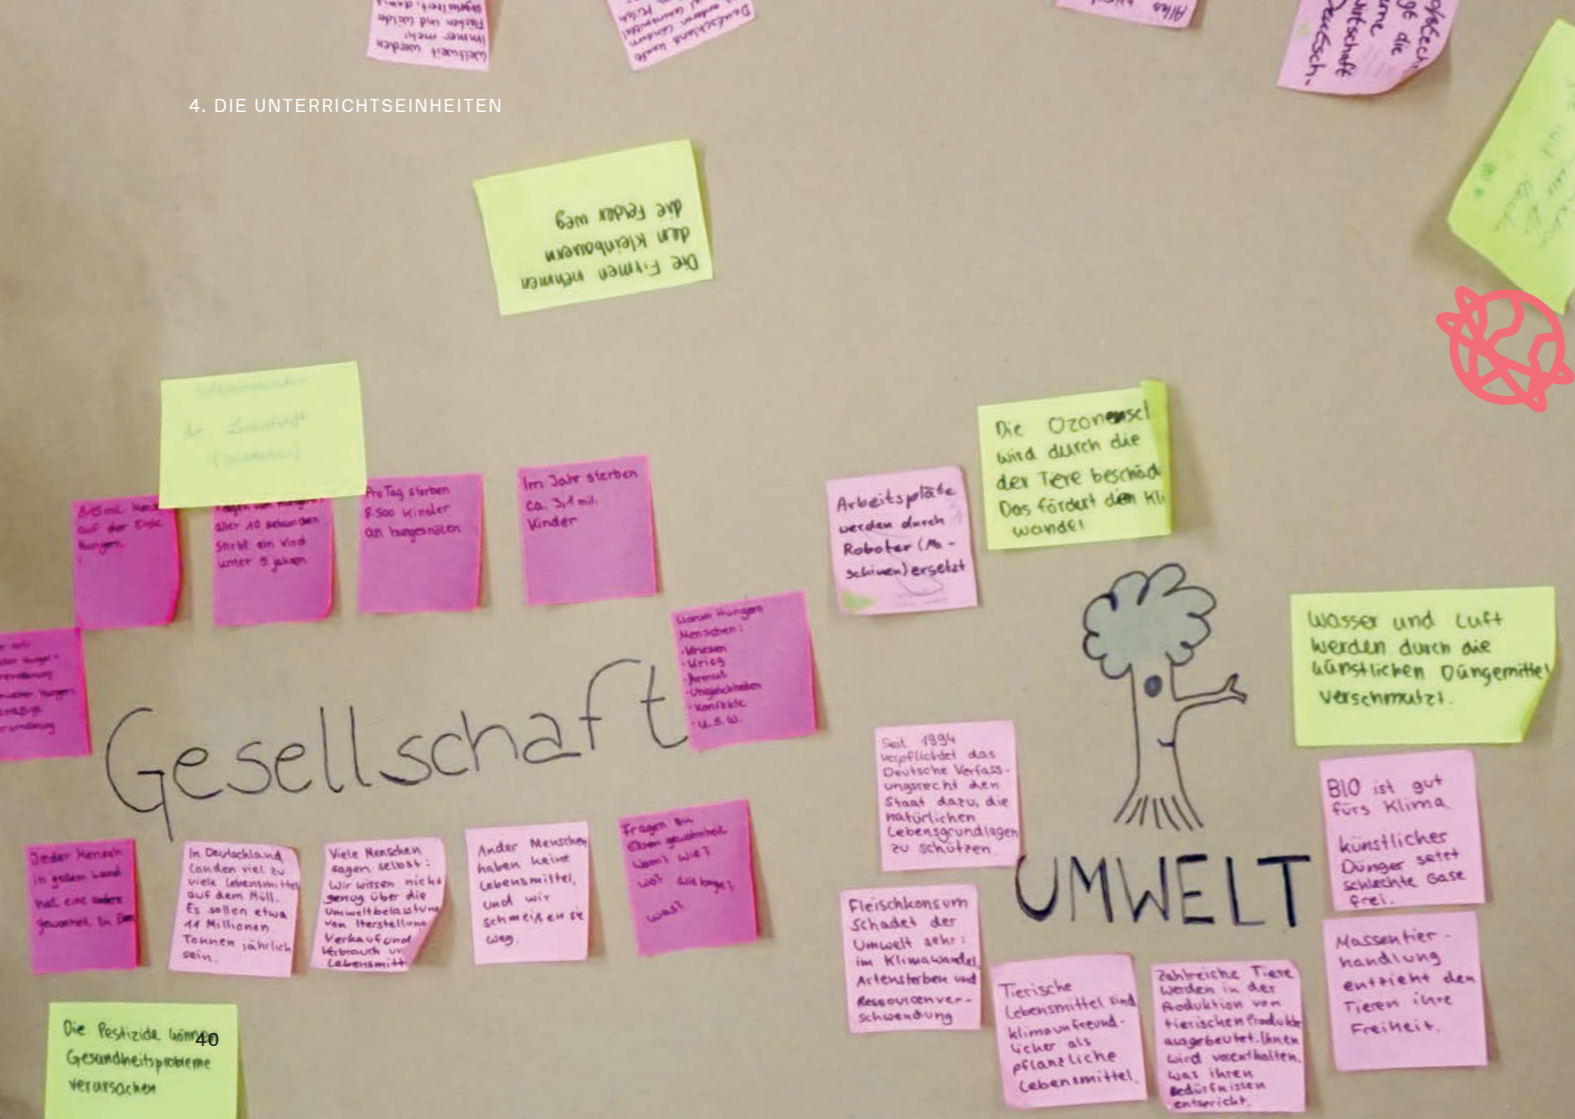 4. DIE UNTERRICHTSEINHEITEN
Weltweit werden
immer mehr
Flächen und Wälder
Deutschland
Alles
gt die
wirtschaft
Die Firmen nehmen
den Kleinbauern
die Felder weg
auf der Erde
Hungern.
aller 10 sekunden
Stirbt ein Kind
unter 5 jahren
Pro Tag sterben
8.500 Kinder
an hungesnöten
Im Jahr sterben
ca. 3,1 mil.
Kinder
Arbeitsplätze
werden durch
Roboter (Ma-
schinen) ersetzt
Die Ozon
wird durch die
der Tiere beschäd
Das fördert den Kli
wandel
Warum Hungern
Menschen:
·Kriesen
·Krieg
·Armut
·Ungleichheiten
·Konflikte
·u.s.w.
Wasser und Luft
werden durch die
künstlichen Düngemittel
verschmutzt.
Gesellschaft
Seit 1994
verpflichtet das
Deutsche Verfass-
ungsrecht den
Staat dazu, die
natürlichen
Lebensgrundlagen
zu schützen.
BIO ist gut
fürs Klima
künstlicher
Dünger setzt
schlechte Gase
frei.
UMWELT
Jeder Mensch
in jedem Land
hat eine andere
gewohnheit zu Essen
In Deutschland
landen viel zu
viele Lebensmittel
auf dem Müll.
Es sollen etwa
11 Millionen
Tonnen jährlich
sein.
Viele Menschen
sagen selbst:
Wir wissen nicht
genug über die
Umweltbelastung
von Herstellung
Verkauf und
Verbrauch
Lebensmitt
Ander Menschen
haben keine
Lebensmittel,
und wir
schmeißen sie
weg.
Fragen zu
Essen gewohnheit
Wann? Wie?
wo? Wie lange?
was?
Fleischkonsum
Schadet der
Umwelt sehr:
im Klimawandel,
Artensterben und
Ressourcenver-
schwendung
Tierische
Lebensmittel sind
klimaunfreund-
licher als
pflanzliche
Lebensmittel.
Zahlreiche Tiere
werden in der
Produktion von
tierischen Produkte
ausgebeutet. Ihnen
wird vorenthalten,
was ihren
Bedürfnissen
entspricht.
Massentier-
handlung
entzieht den
Tieren ihre
Freiheit.
Die Pestizide können
Gesundheitsprobleme
verursachen
40